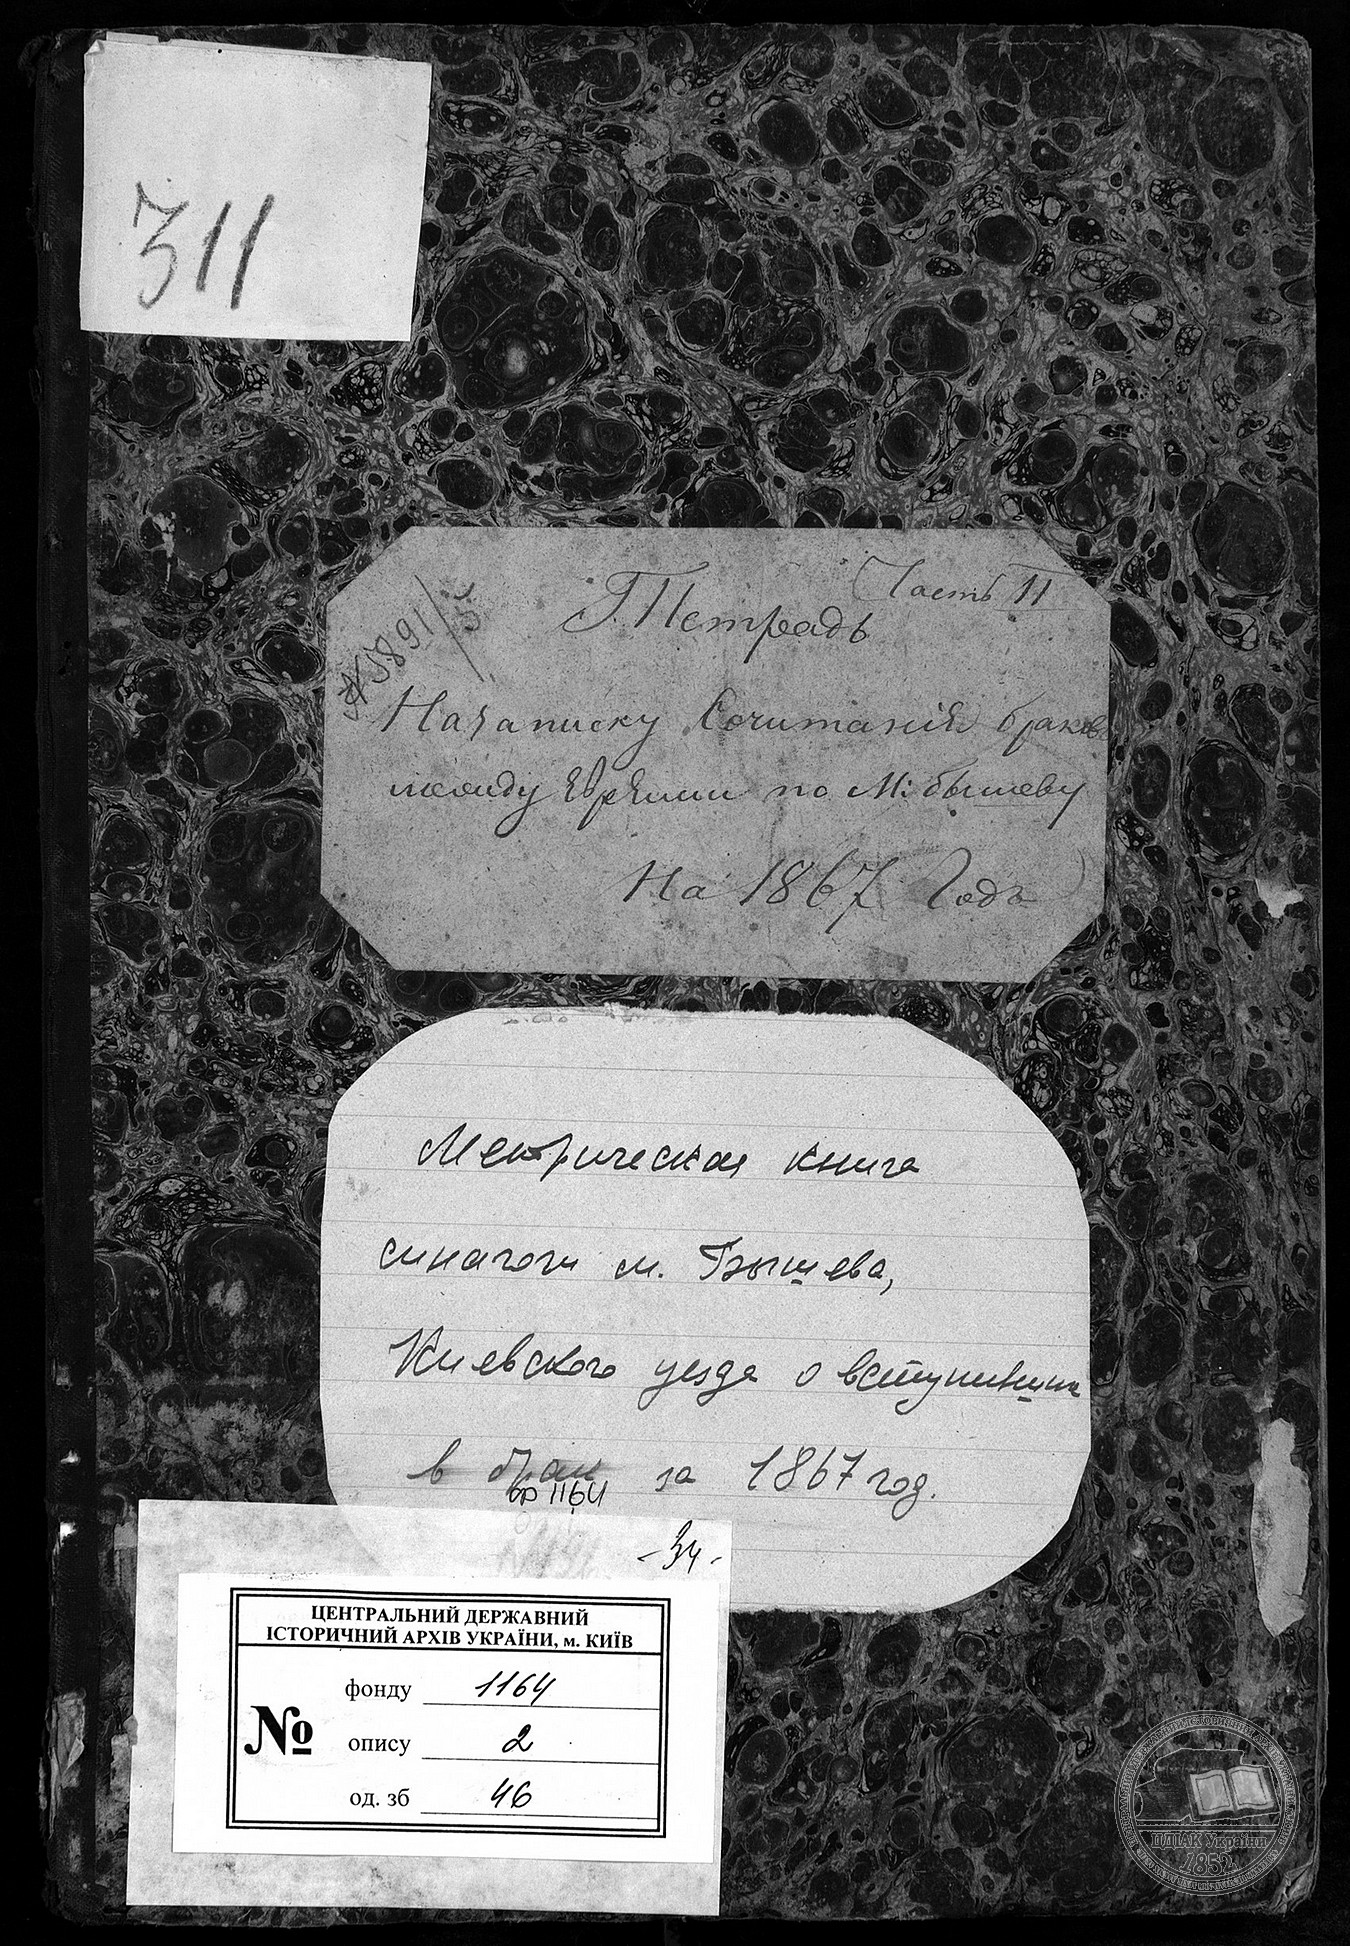 311
Часть II
Тетрадь
№ 5891/
На записку Сочитанія браков
между Евреями по М: Бышеву
На 1867 Годъ
Метрическая книга
синагоги м. Бышева,
Киевского уезда о вступивших
в брак за 1867 год.
ф 1164
- 34 -
ЦЕНТРАЛЬНИЙ ДЕРЖАВНИЙ
ІСТОРИЧНИЙ АРХІВ УКРАЇНИ, м. КИЇВ
№
фонду 1164
опису 2
од. зб 46
ЦДІАК України
1852